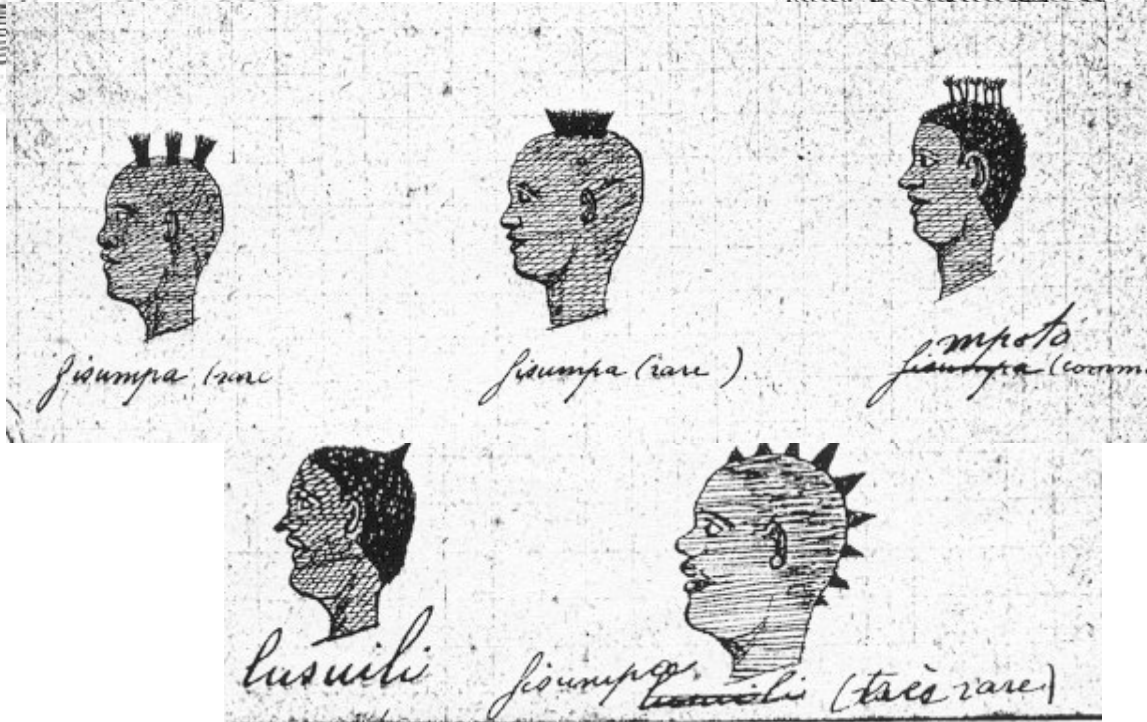 fisumpa (rare
fisumpa (rare)
mpota
fisumpa (comm
lusuili
fisumpa
lusuili (très rare)